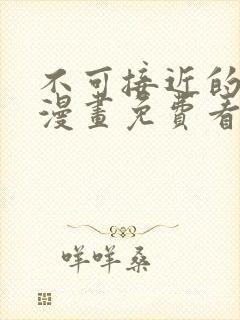 不可接近的
漫畫免費看
咩咩桑